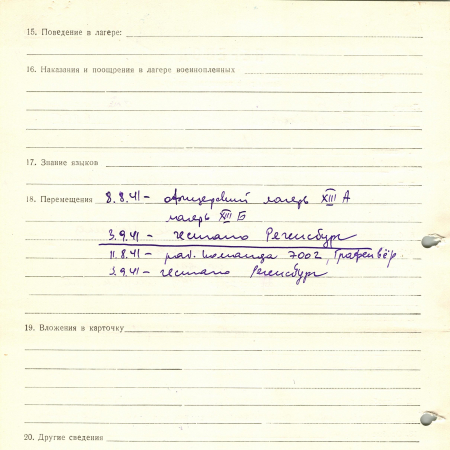 15. Поведение в лагере:
16. Наказания и поощрения в лагере военнопленных
17. Знание языков
18. Перемещения 8.8.41 - офицерский лагерь XIII А
лагерь XIII Б
3.9.41 - гестапо Регенсбург
11.8.41 - раб. команда 7002, Графенвёр
3.9.41 - гестапо Регенсбург
19. Вложения в карточку
20. Другие сведения